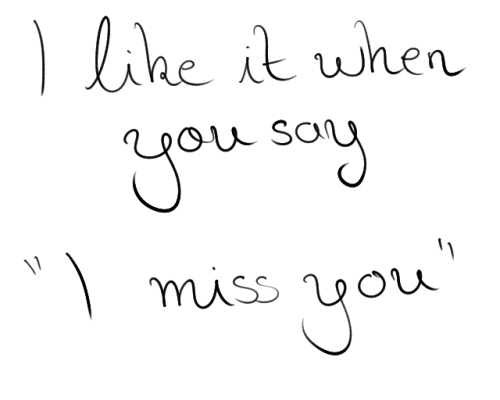 I like it when
you say
"I miss you"